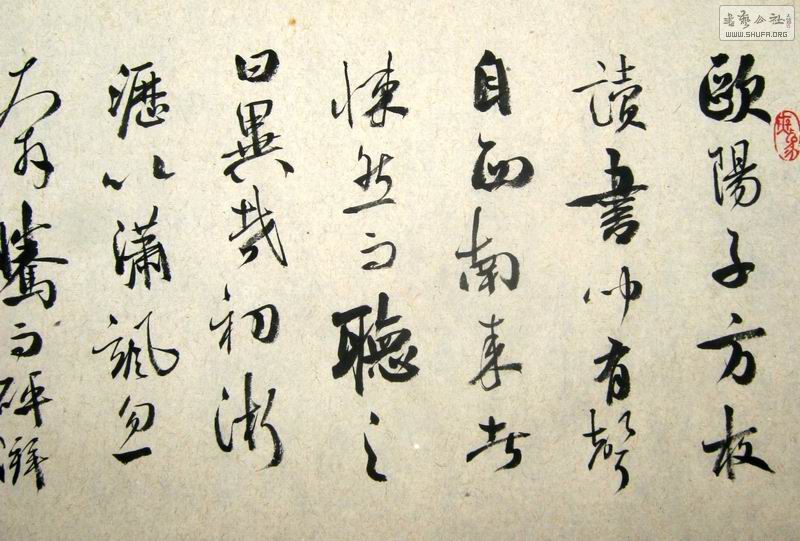 歐陽子方夜
讀書聞有聲
自西南來者
悚然而聽之
曰異哉初淅
瀝以瀟颯忽
奔騰而砰湃
書藝公社
WWW.SHUFA.ORG